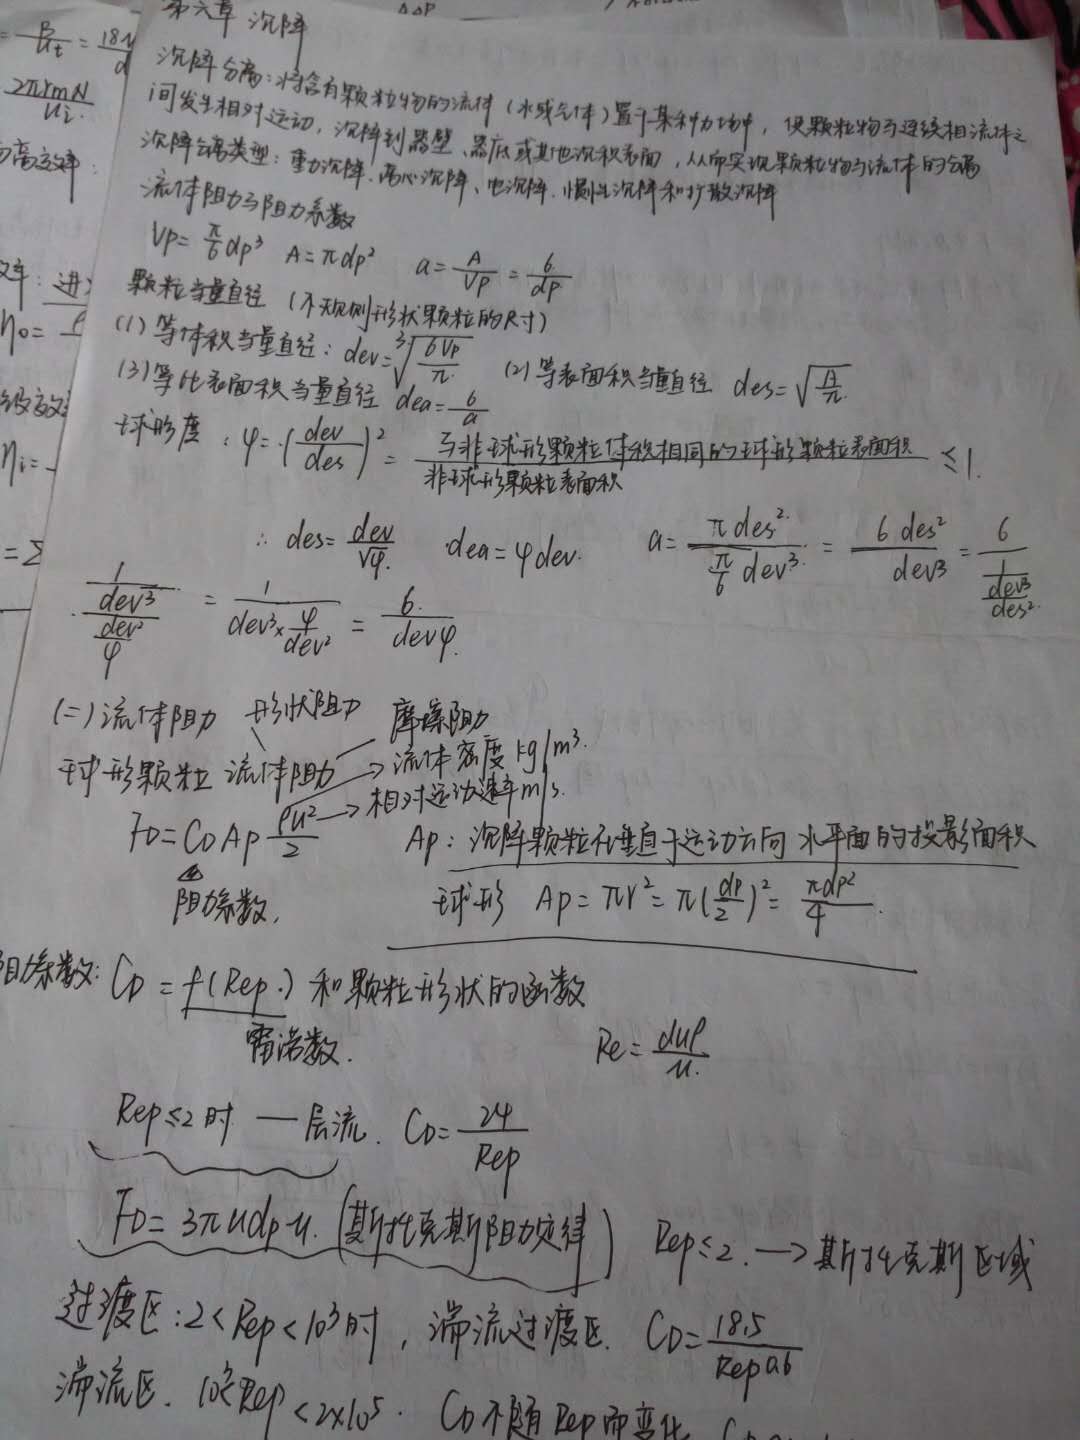 第六章 沉降
沉降分离：将含有颗粒物的流体（水或气体）置于某种力场中，使颗粒物与连续相流体之
间发生相对运动，沉降到器壁、器底或其他沉积表面，从而实现颗粒物与流体的分离
沉降分离类型：重力沉降、离心沉降、电沉降、惯性沉降和扩散沉降
流体阻力与阻力系数
Vp=π/6 dp³ A=πdp² a=A/Vp=6/dp
颗粒当量直径（不规则形状颗粒的尺寸）
(1)等体积当量直径：dev=³√(6Vp/π) (2)等表面积当量直径 des=√(A/π)
(3)等比表面积当量直径 dea=6/a
球形度：φ=(dev/des)²=与非球形颗粒体积相同的球形颗粒表面积/非球形颗粒表面积 ≤1.
∴ des=dev/√φ. dea=φdev. a=πdes²/(π/6 dev³)=6des²/dev³=6/(dev³/des²)
1/(dev³/(dev²/φ))=1/(dev³×φ/dev²)=6/(devφ)
(二)流体阻力 形状阻力 摩擦阻力
球形颗粒 流体阻力 流体密度 kg/m³.
相对运动速率m/s.
FD=CD Ap ρu²/2 Ap：沉降颗粒在垂直于运动方向水平面的投影面积
阻力系数, 球形 Ap=πr²=π(dp/2)²=πdp²/4.
阻力系数: CD=f(Rep.)和颗粒形状的函数
雷诺数. Re=duρ/μ.
Rep≤2时 — 层流. CD=24/Rep
FD=3πudpμ.(斯托克斯阻力定律) Rep≤2. → 斯托克斯区域
过渡区：2<Rep<10³时，湍流过渡区. CD=18.5/Rep^0.6
湍流区. 10³<Rep<2×10⁵. CD不随Rep而变化
2πrmN/ui
η0=
ηi=
=Σ